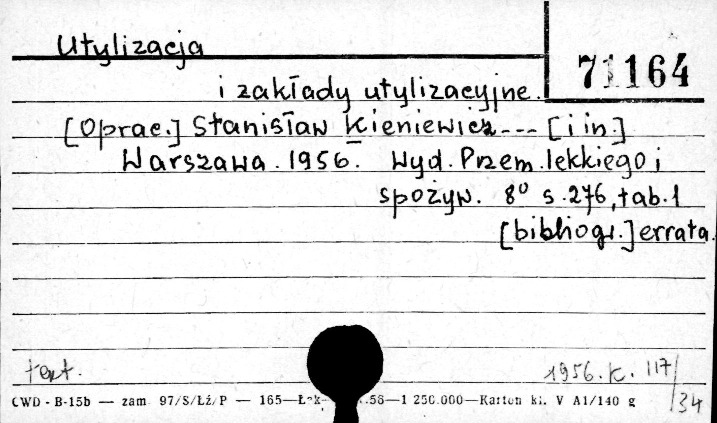 Utylizacja
71164
i zakłady utylizacyjne.
[Oprac.] Stanisław Kieniewicz --- [i in.]
Warszawa. 1956. Wyd. Przem. lekkiego i
spożyw. 8° s. 276, tab. 1
[bibliogr.] errata.
1956. K. 117/34
CWD - B-15b — zam. 97/S/Łź/P — 165— .56—1 250.000—Karton kl. V A1/140 g